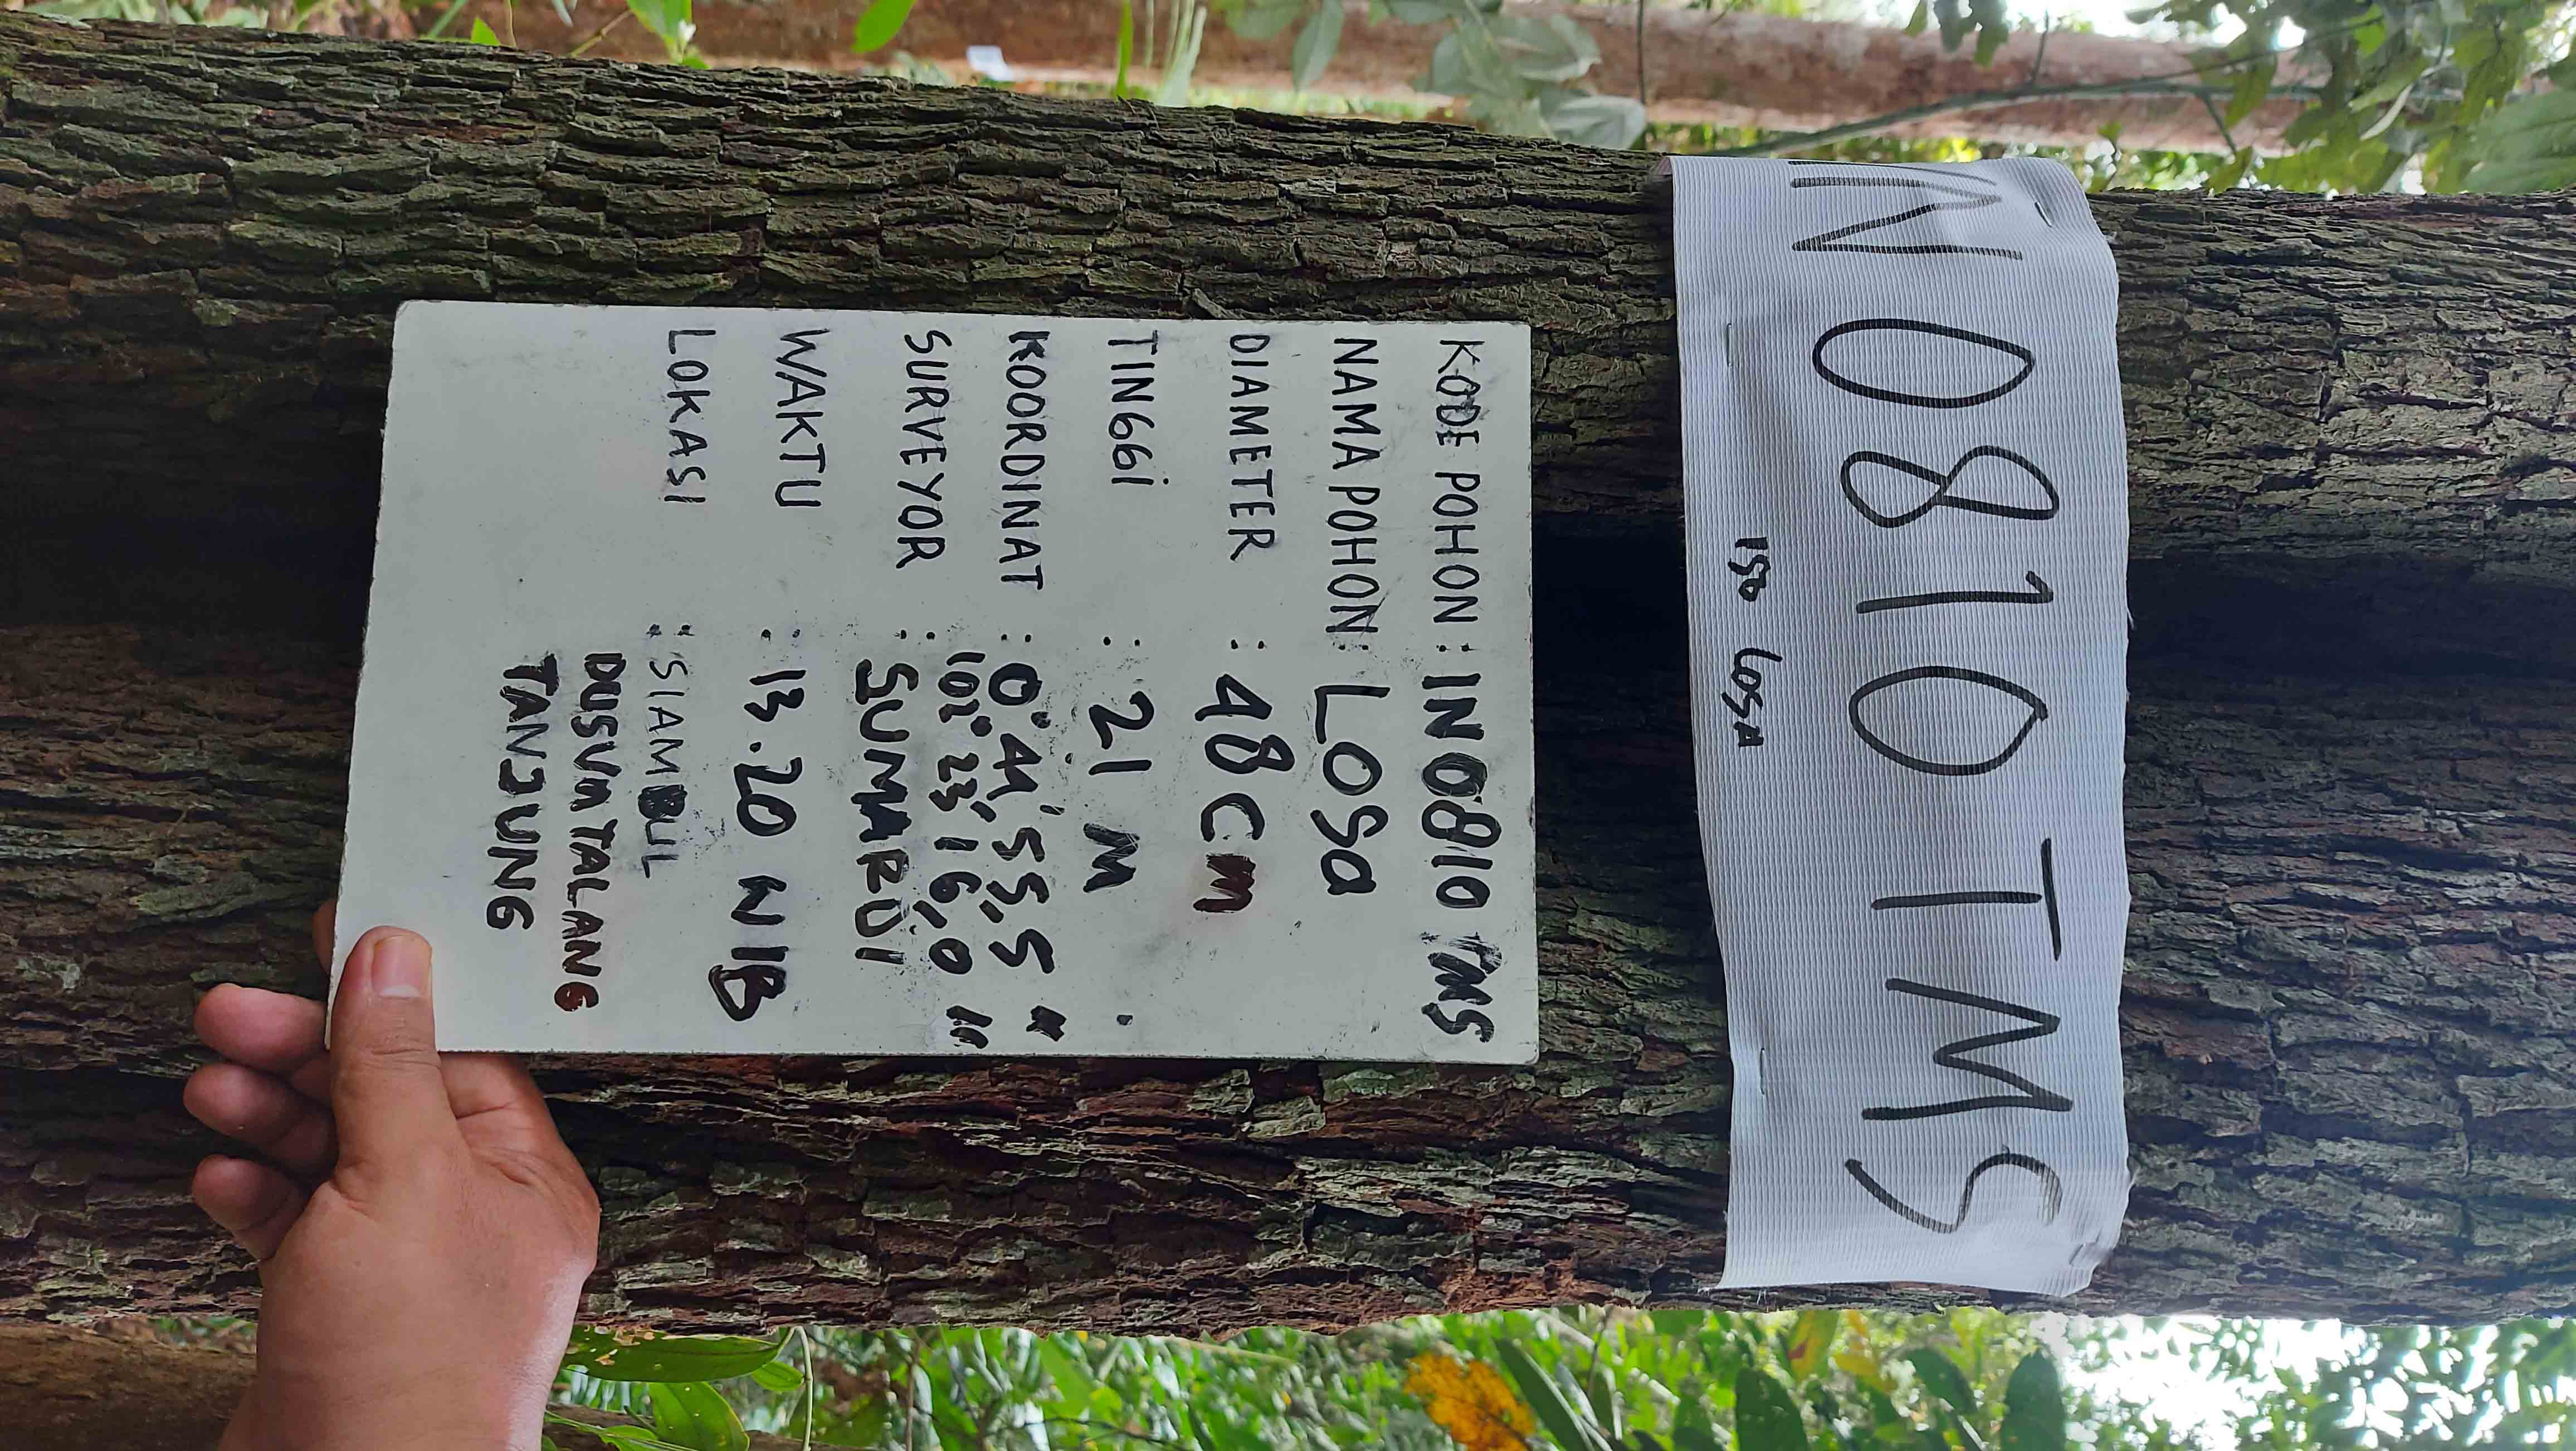 IN 0810 TMS
150 Losa
KODE POHON : IN0810 TMS
NAMA POHON : LOSa
DIAMETER : 48 cm
TINGGi : 21 M
KOORDINAT : 0° 44' 55,5 "
102° 23' 16,0 "
SURVEYOR : SUMARDI
WAKTU : 13.20 WIB
LOKASI : SIAMBUL
DUSUN TALANG
TANJUNG